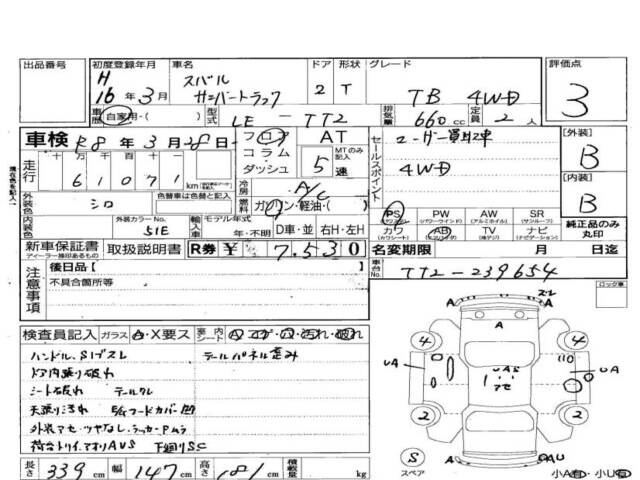 出品番号 初度登録年月 車名 ドア 形状 グレード 評価点
H 16年3月 スバル サンバートラック 2 T TB 4WD 3
車歴 自家用・( ) 型式 LE-TT2 排気量 660cc 定員 2人
車検 R8年3月28日 フロア AT ユーザー買取車 [外装]
走行 十万 万 千 百 十 一 コラム MTのみ記入 セールスポイント 4WD B
61071 km ダッシュ 5速 [内装]
外装色 シロ 色替車は色替と記入 冷房 A/C B
燃料 ガソリン・軽油・( ) PS PW AW SR
(パワステ) (パワーウインド) (アルミホイル) (サンルーフ)
内装色 外装カラーNo. 51E 輸入車 モデル年式 年・不明 D車・並 右H・左H カワ AB TV ナビ 純正品のみ丸印
(カワシート) (エアバッグ) (ナビゲーション)
新車保証書 取扱説明書 R券 ¥ 7,530 名変期限 月 日迄
ディーラー捺印あるもの
注意事項 後日品[ 車台No. TT2-239654
不具合箇所等 ロック車
検査員記入 ガラス A・X要ス 内 シート
ハンドル、Slブスレ テールパネル歪み
ドア内張り破れ
シート破れ テールクレ
天張り汚れ
外装アセ・ツヤなし、ラッカーPムラ
荷台トリイ、アオリAUS 下廻りSC
長さ 339cm 幅 147cm 高さ 181cm 積載量 kg
A A
A
4 4
UA UAS アセ UA
2 2
S スペア A AU
小A 小U